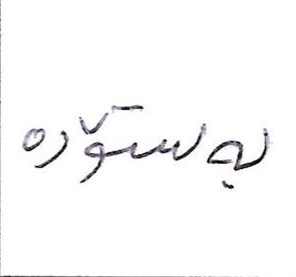 بەستۆرە